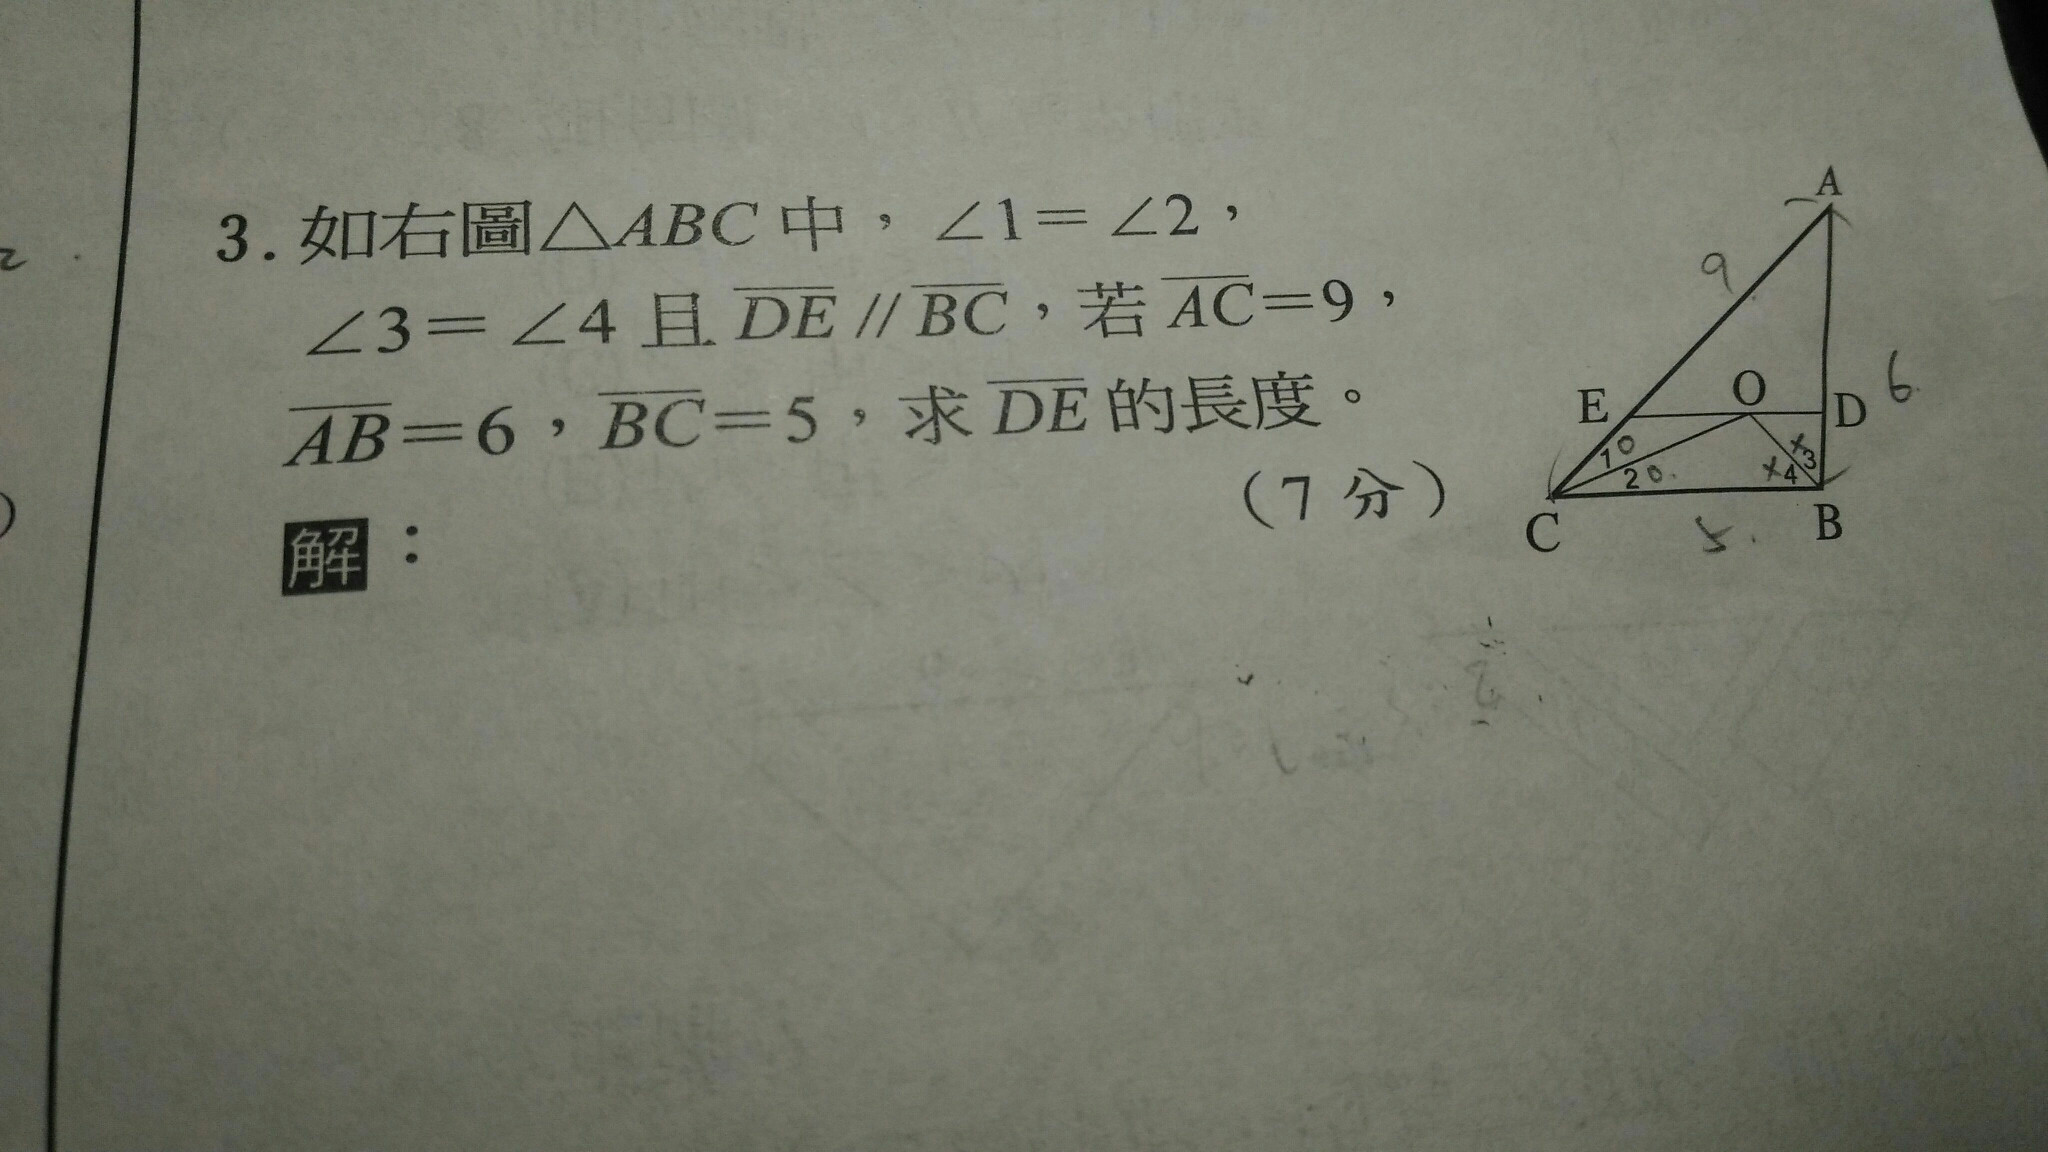 3. 如右圖△ABC 中，∠1＝∠2，
∠3＝∠4 且 DE // BC，若 AC＝9，
AB＝6，BC＝5，求 DE 的長度。
（7 分）
解：
A
9
6
E
O
D
1
3
2
4
C
B
5